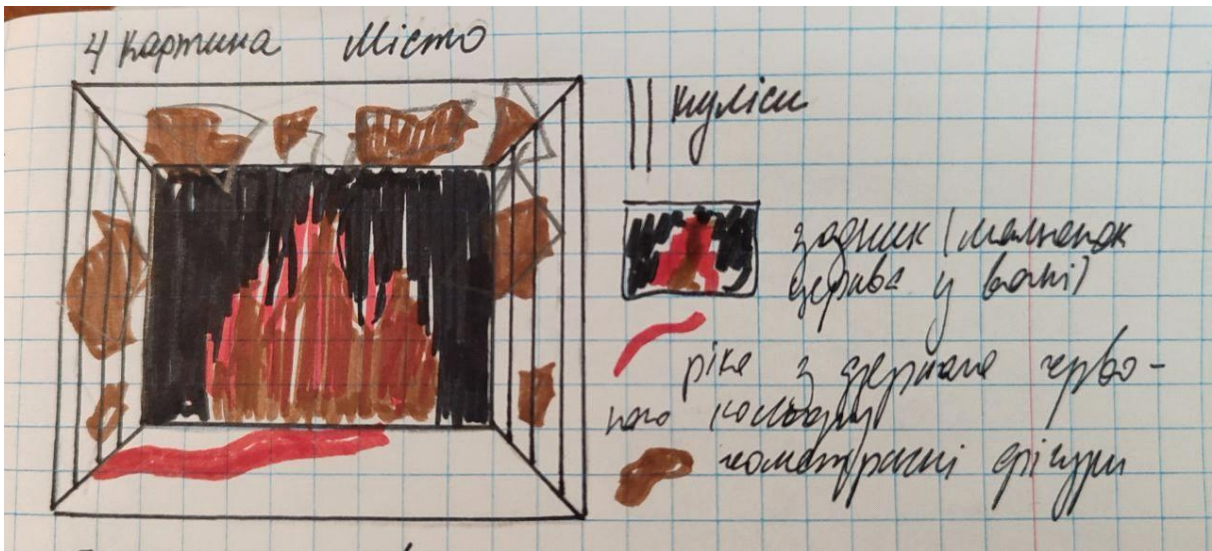 4 картина Місто
куліси
задник (малюнок
дерева у вогні)
ріка з дерматина черво-
ного кольору
геометричні фігури